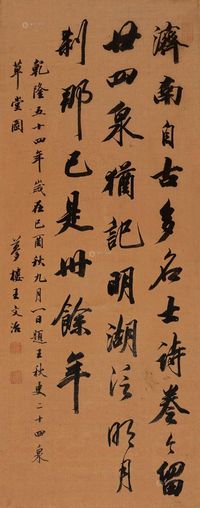 濟南自古多名士詩卷長留
廿四泉猶記明湖泛明月
剎那已是卅餘年
乾隆五十四年歲在己酉秋九月一日題王秋史二十四泉
草堂圖
夢樓王文治